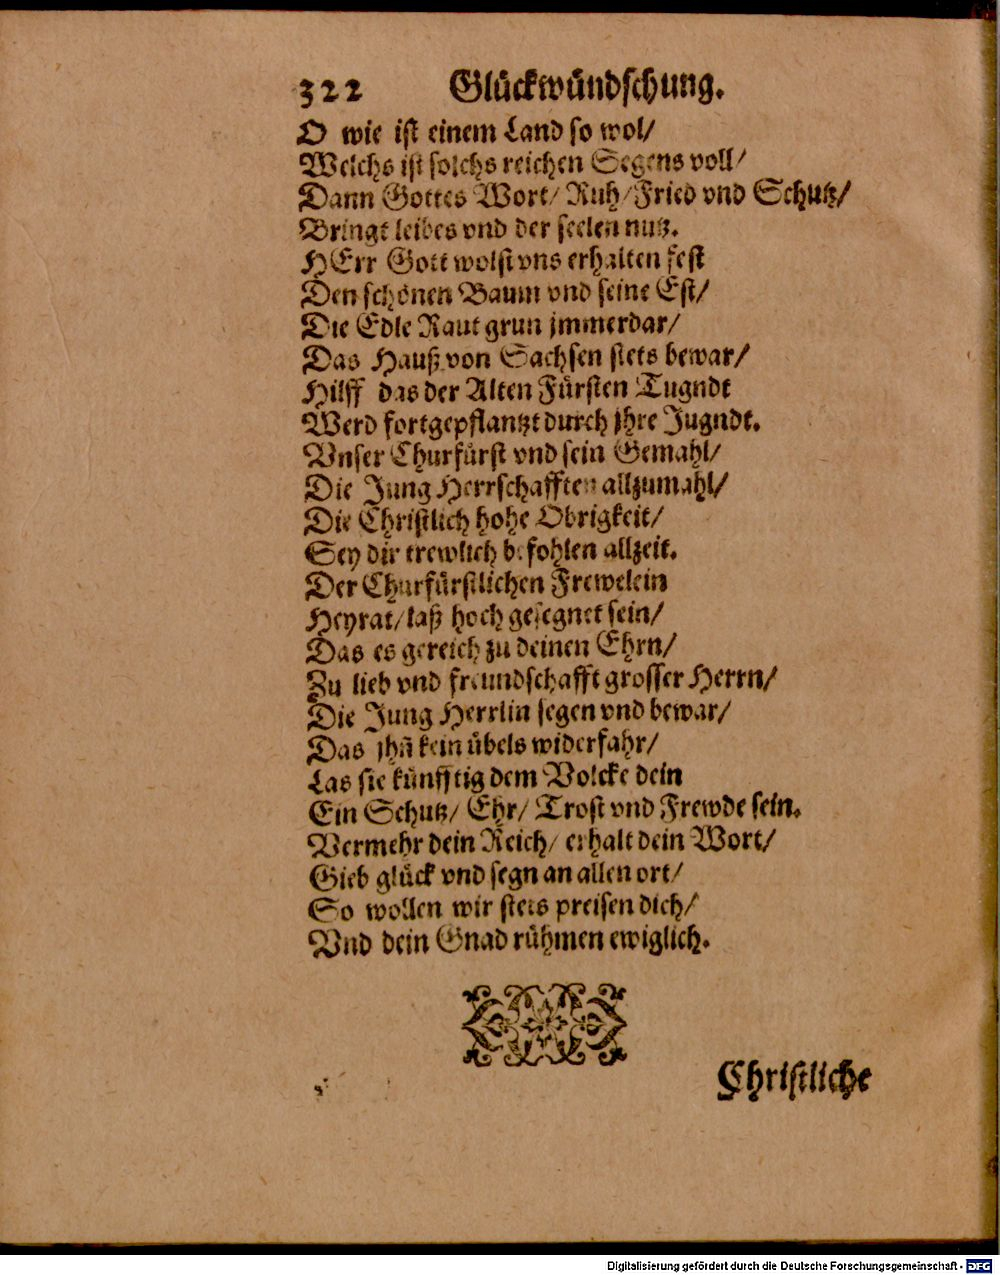 322 Glückwündschung.
O wie ist einem Land so wol/
Welchs ist solchs reichen Segens voll/
Dann Gottes Wort/ Ruh/ Fried vnd Schutz/
Bringt leibes vnd der seelen nutz.
HErr Gott wolst vns erhalten fest
Den schönen Baum vnd seine Est/
Die Edle Raut grun jmmerdar/
Das Hauß von Sachsen stets bewar/
Hilff das der Alten Fürsten Tugndt
Werd fortgepflantzt durch jhre Jugndt.
Vnser Churfürst vnd sein Gemahl/
Die Jung Herrschafften allzumahl/
Die Christlich hohe Obrigkeit/
Sey dir trewlich befohlen allzeit.
Der Churfürstlichen Frewelein
Heyrat/ laß hoch gesegnet sein/
Das es gereich zu deinen Ehrn/
Zu lieb vnd freundschafft grosser Herrn/
Die Jung Herrlin segen vnd bewar/
Das jhn̄ kein übels widerfahr/
Las sie künfftig dem Volcke dein
Ein Schutz/ Ehr/ Trost vnd Frewde sein.
Vermehr dein Reich/ erhalt dein Wort/
Gieb glück vnd segn an allen ort/
So wollen wir stets preisen dich/
Vnd dein Gnad rühmen ewiglich.
Christliche
Digitalisierung gefördert durch die Deutsche Forschungsgemeinschaft - DFG